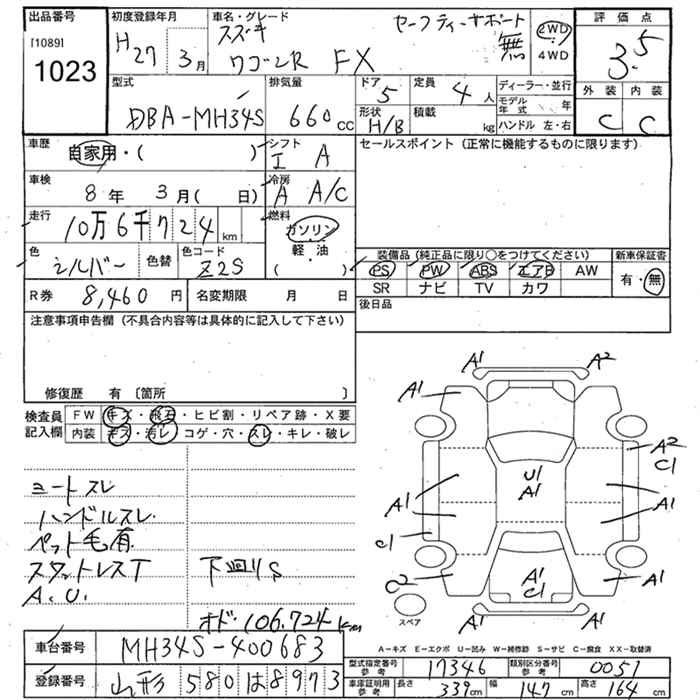 出品番号 初度登録年月 車名・グレード 評価点
[1089]
1023
H27 3月 スズキ ワゴンR FX セーフティーサポート 無 2WD 4WD 3.5
型式 排気量 ドア 定員 ディーラー・並行 外装 内装
DBA-MH34S 660 CC 5 4人 モデル年式 年 C C
形状 積載 kg ハンドル 左・右
H/B
車歴 自家用・( ) シフト I A セールスポイント (正常に機能するものに限ります)
車検 8年 3月( 日) 冷房 A A/C
走行 10万6千724 km 燃料 ガソリン 軽・油 ( )
色 シルバー 色替 色コード Z2S
装備品(純正品に限り○をつけてください) 新車保証書
PS PW ABS エアB AW 有・無
SR ナビ TV カワ
R券 8,460円 名変期限 月 日 後日品
注意事項申告欄(不具合内容等は具体的に記入して下さい)
修復歴 有 〔箇所 〕
検査員記入欄 FW キズ・飛石・ヒビ割・リペア跡・X要
内装 キズ・汚レ・コゲ・穴・スレ・キレ・破レ
A1 A2
A1
A2
C1
U1
A1
A1 A1
A1
C1
C2 A1 A1
C1
A1 A1
スペア
シートスレ
ハンドルスレ
ペット毛有
スタットレスT 下回りS
A.U.
オド・106.724km
A-キズ E-エクボ U-凹み W-補修跡 S-サビ C-腐食 XX-取替済
車台番号 MH34S-400683
型式指定番号 参考 17346 類別区分番号 参考 0051
登録番号 山形 580 は 8973
車庫証明用 参考 長さ 339cm 幅 147cm 高さ 164cm